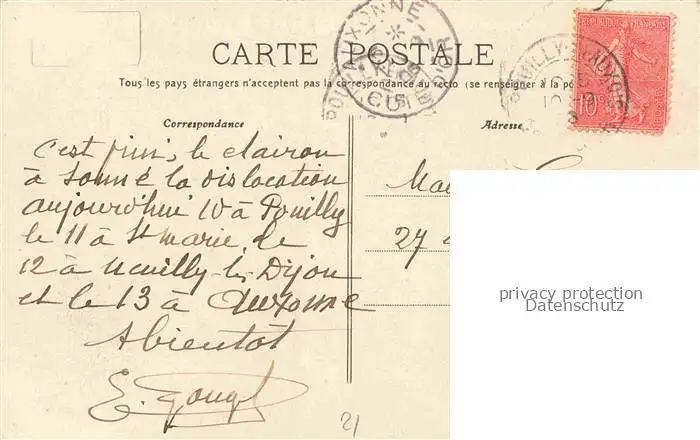 REPUBLIQUE FRANÇAISE
10
CARTE POSTALE
AUXONNE
CÔTE D'OR
POUILLY-EN-AUXOIS
10 -9
Tous les pays étrangers n'acceptent pas la correspondance au recto (se renseigner à la po
Correspondance
Adresse
C'est fini, le clairon
à sonné la dislocation
aujourd'hui 10 à Pouilly
le 11 à St marie, le
12 à Neuilly-les-Dijon
et le 13 à Auxonne
A bientôt
27
privacy protection
Datenschutz
21